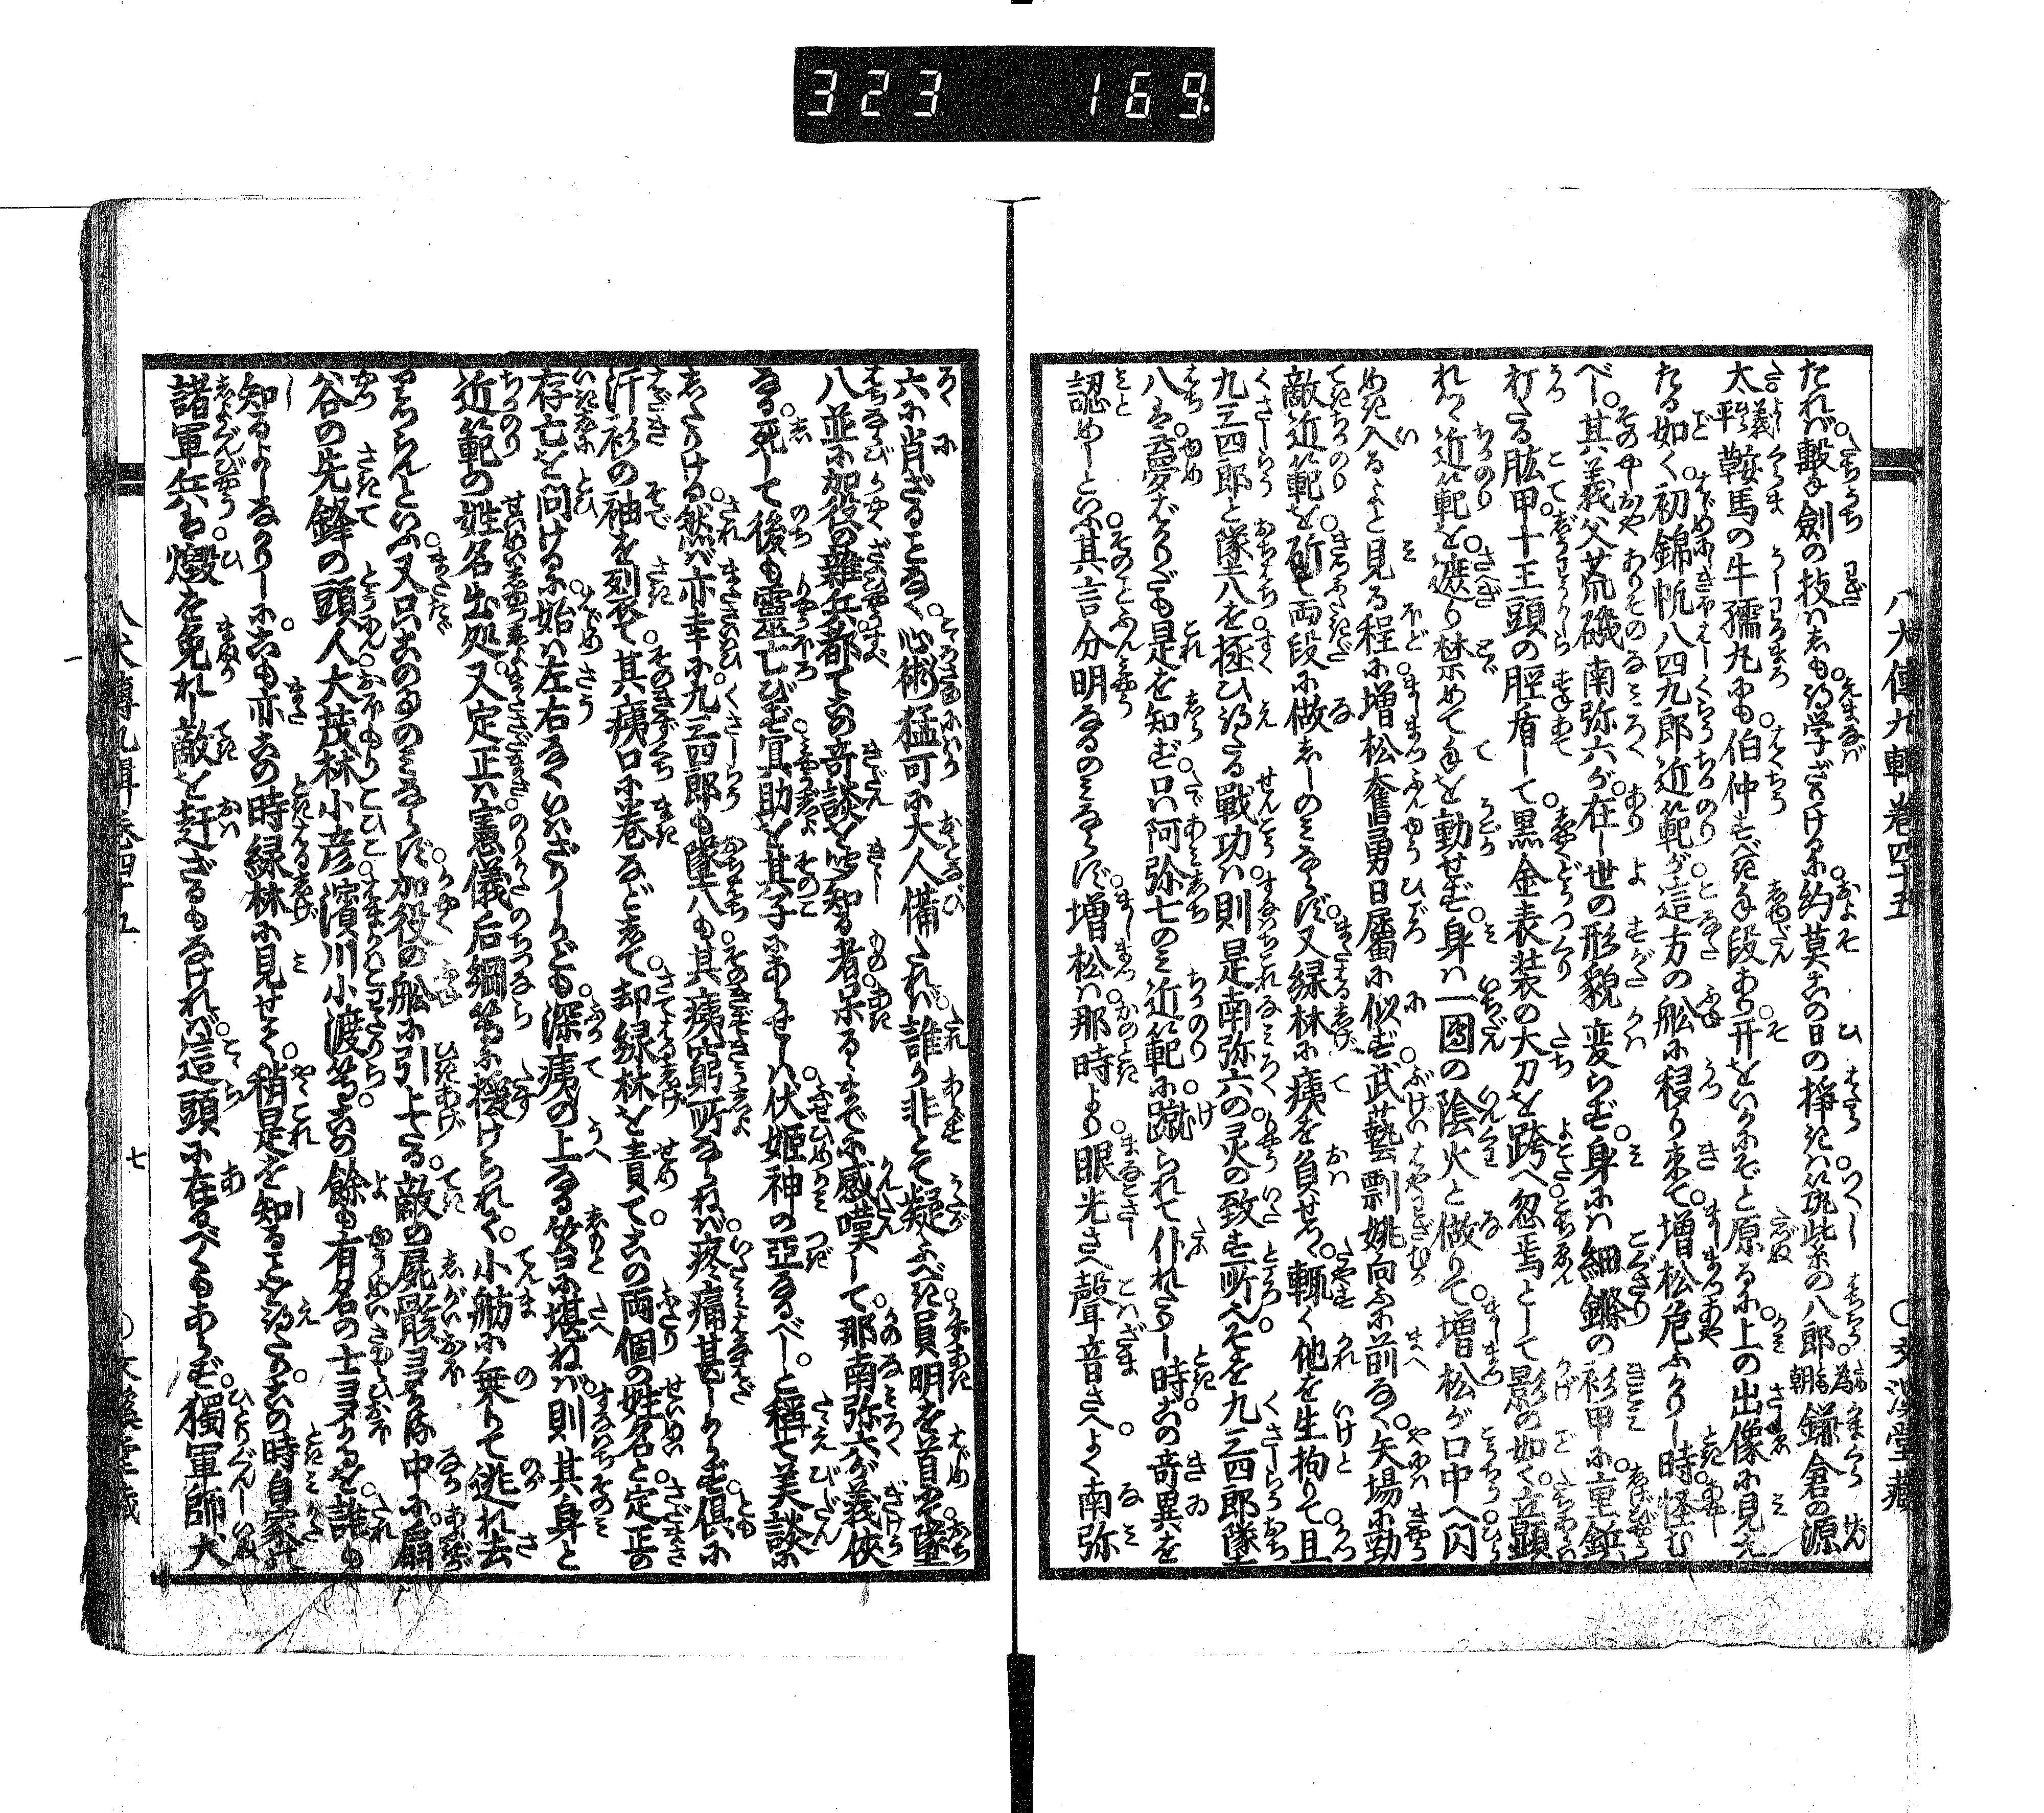 323 169
八犬傳九輯巻四十五
文溪堂藏
たれバ撃劔の技ハしも得学ざりけるに約莫この日の挊ぎハ筑紫の八郎為朝鎌倉の源
太義平鞍馬の牛孺九にも伯仲すべき手段あり开をいかにぞと原るに上の出像に見え
たる如く初錦帆八四九郎近範が這方の舩に稑り来て増松危ふかりし時怪むベ
べし其義父荒磯南弥六が在し世の形貌変らず身にハ細鏁の衫甲に重鋲
打たる肱甲十王頭の脛盾して黒金表装の大刀を跨へ忽焉として影の如く立顕
れて近範を遮り禁めて手を動せず身ハ一團の陰火と做りて増松が口中へ閃
めき入るよと見る程に増松奮勇日属に似ず武藝剽姚向ふに前なく矢場に勁
敵近範を斫て両段に做ししのみならず又緑林に痍を負せて輙く他を生拘りて且
九三四郎と墜八を拯ひ得たる戰功ハ則是南弥六の灵の致す所へそを九三四郎墜
八ハ夢ばかりも是を知ず只阿弥七のミ近範に蹴られて仆れたりし時この奇異を
認めしといふ其言分明なるのミならず増松ハ那時より眼光さへ聲音さへよく南弥
六に肖ざることなく心術猛可に大人備たれバ誰か非とて疑ふべき貟明を首にて墜
八並に加役の雜兵都てこの奇談を听知る者呆るゝまでに感嘆して那南弥六が義俠
なる死して後も霊亡びず冥助を其子にあらせしハ伏姫神の亞なるべしと稱て美談に
したりける然バ亦幸に九三四郎も墜八も其痍窮所ならねバ疼痛甚しからず俱に
汗衫の袖を裂て其痍口に巻などして却緑林を責てこの両個の姓名と定正の
存亡を問けるに始ハ左右なくいハざりしかども深痍の上なる笞に堪ねバ則其身と
近範の姓名出処又定正ハ憲儀后綱等に援けられて小舫に乗りて逃れ去
りつらんといふ又只この事のミならず加役の舩に引上たる敵の屍骸ある𛂁中に扇
谷の先鋒の頭人大茂林小彦濱川小渡等この餘も有名の士ありけるを誰も
知るよしなかりしに𛂁も亦この時緑林に見せて稍是を知ることを得たりこの時自家の
諸軍兵ハ燬を免れし敵を赶ざるもなけれバ這頭に在るべくもあらず獨軍師犬
七